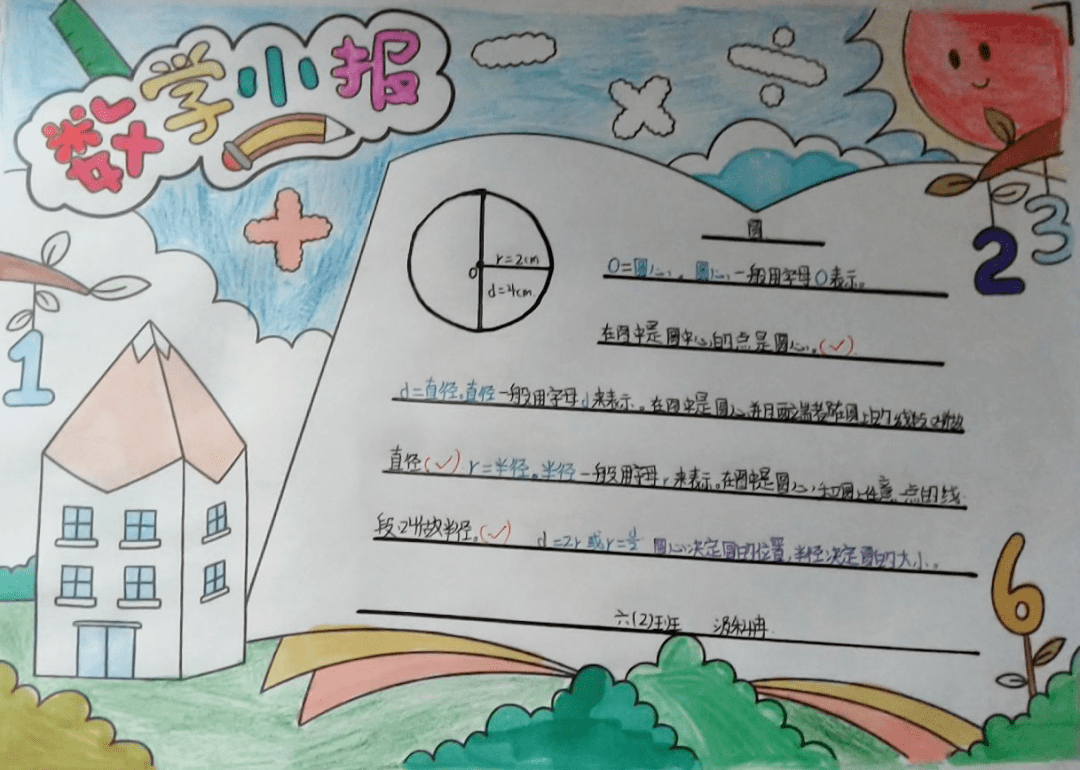 数学小报
r=2cm
O
d=4cm
圆
O=圆心。圆心一般用字母O表示。
在图中是圆中心的点是圆心。(✓)
d=直径。直径一般用字母d来表示。在图中是圆心并且两端都在圆上的线段叫做
直径(✓) r=半径。半径一般用字母r来表示。在图中是圆心和圆上任意一点的线
段叫做半径。(✓) d=2r或r=d/2 圆心决定圆的位置,半径决定圆的大小。
六(2)班
1
2
3
6